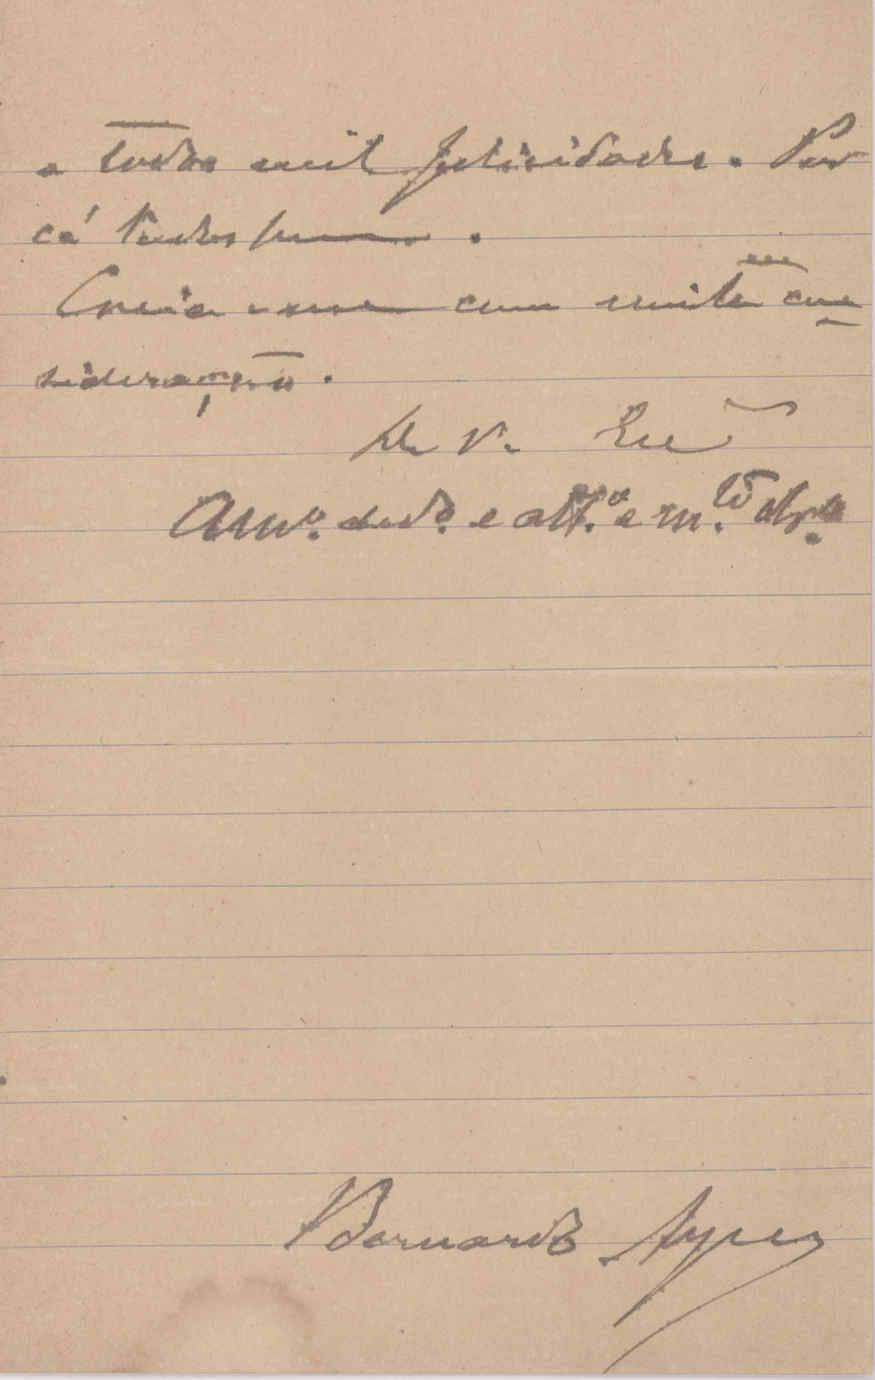 a todos mil felicidades. Por
cá todos bem.
Creia-me com muita con
sideração.
De V. Exª
Amº. dedº. e attº. e m.to obrº.
Bernardo Ayres